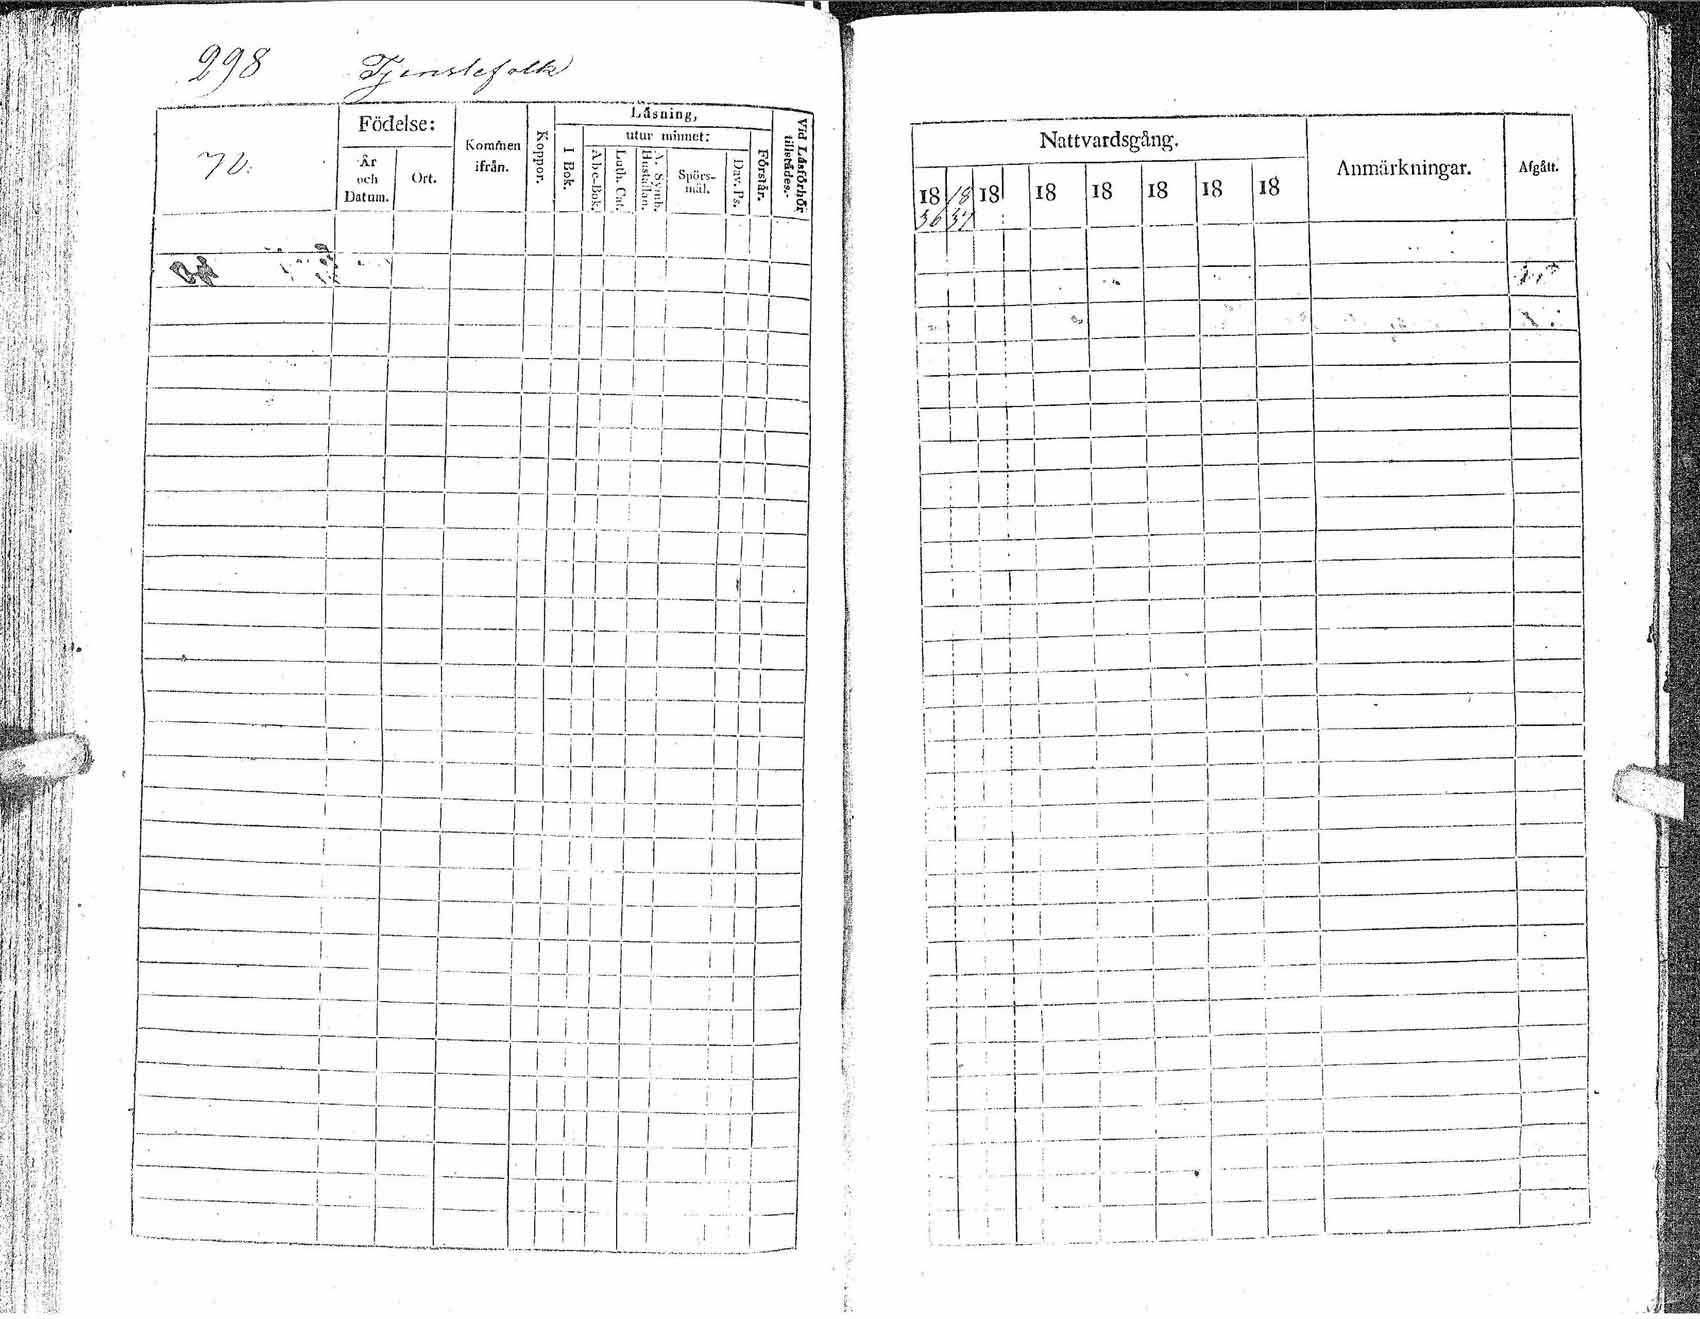 298 Tjenstefolk
Födelse:
År och Datum.
Ort.
Kommen ifrån.
Koppor.
Läsning,
I Bok.
utur minnet:
Abc-Bok.
Luth. Cat.
A. Symb. Hustaflan.
Spörs-mål.
Dav. Ps.
Förstår.
Vid Läsförhör tillstädes.
Nattvardsgång.
18 36
18 37
18
18
18
18
18
18
Anmärkningar.
Afgått.